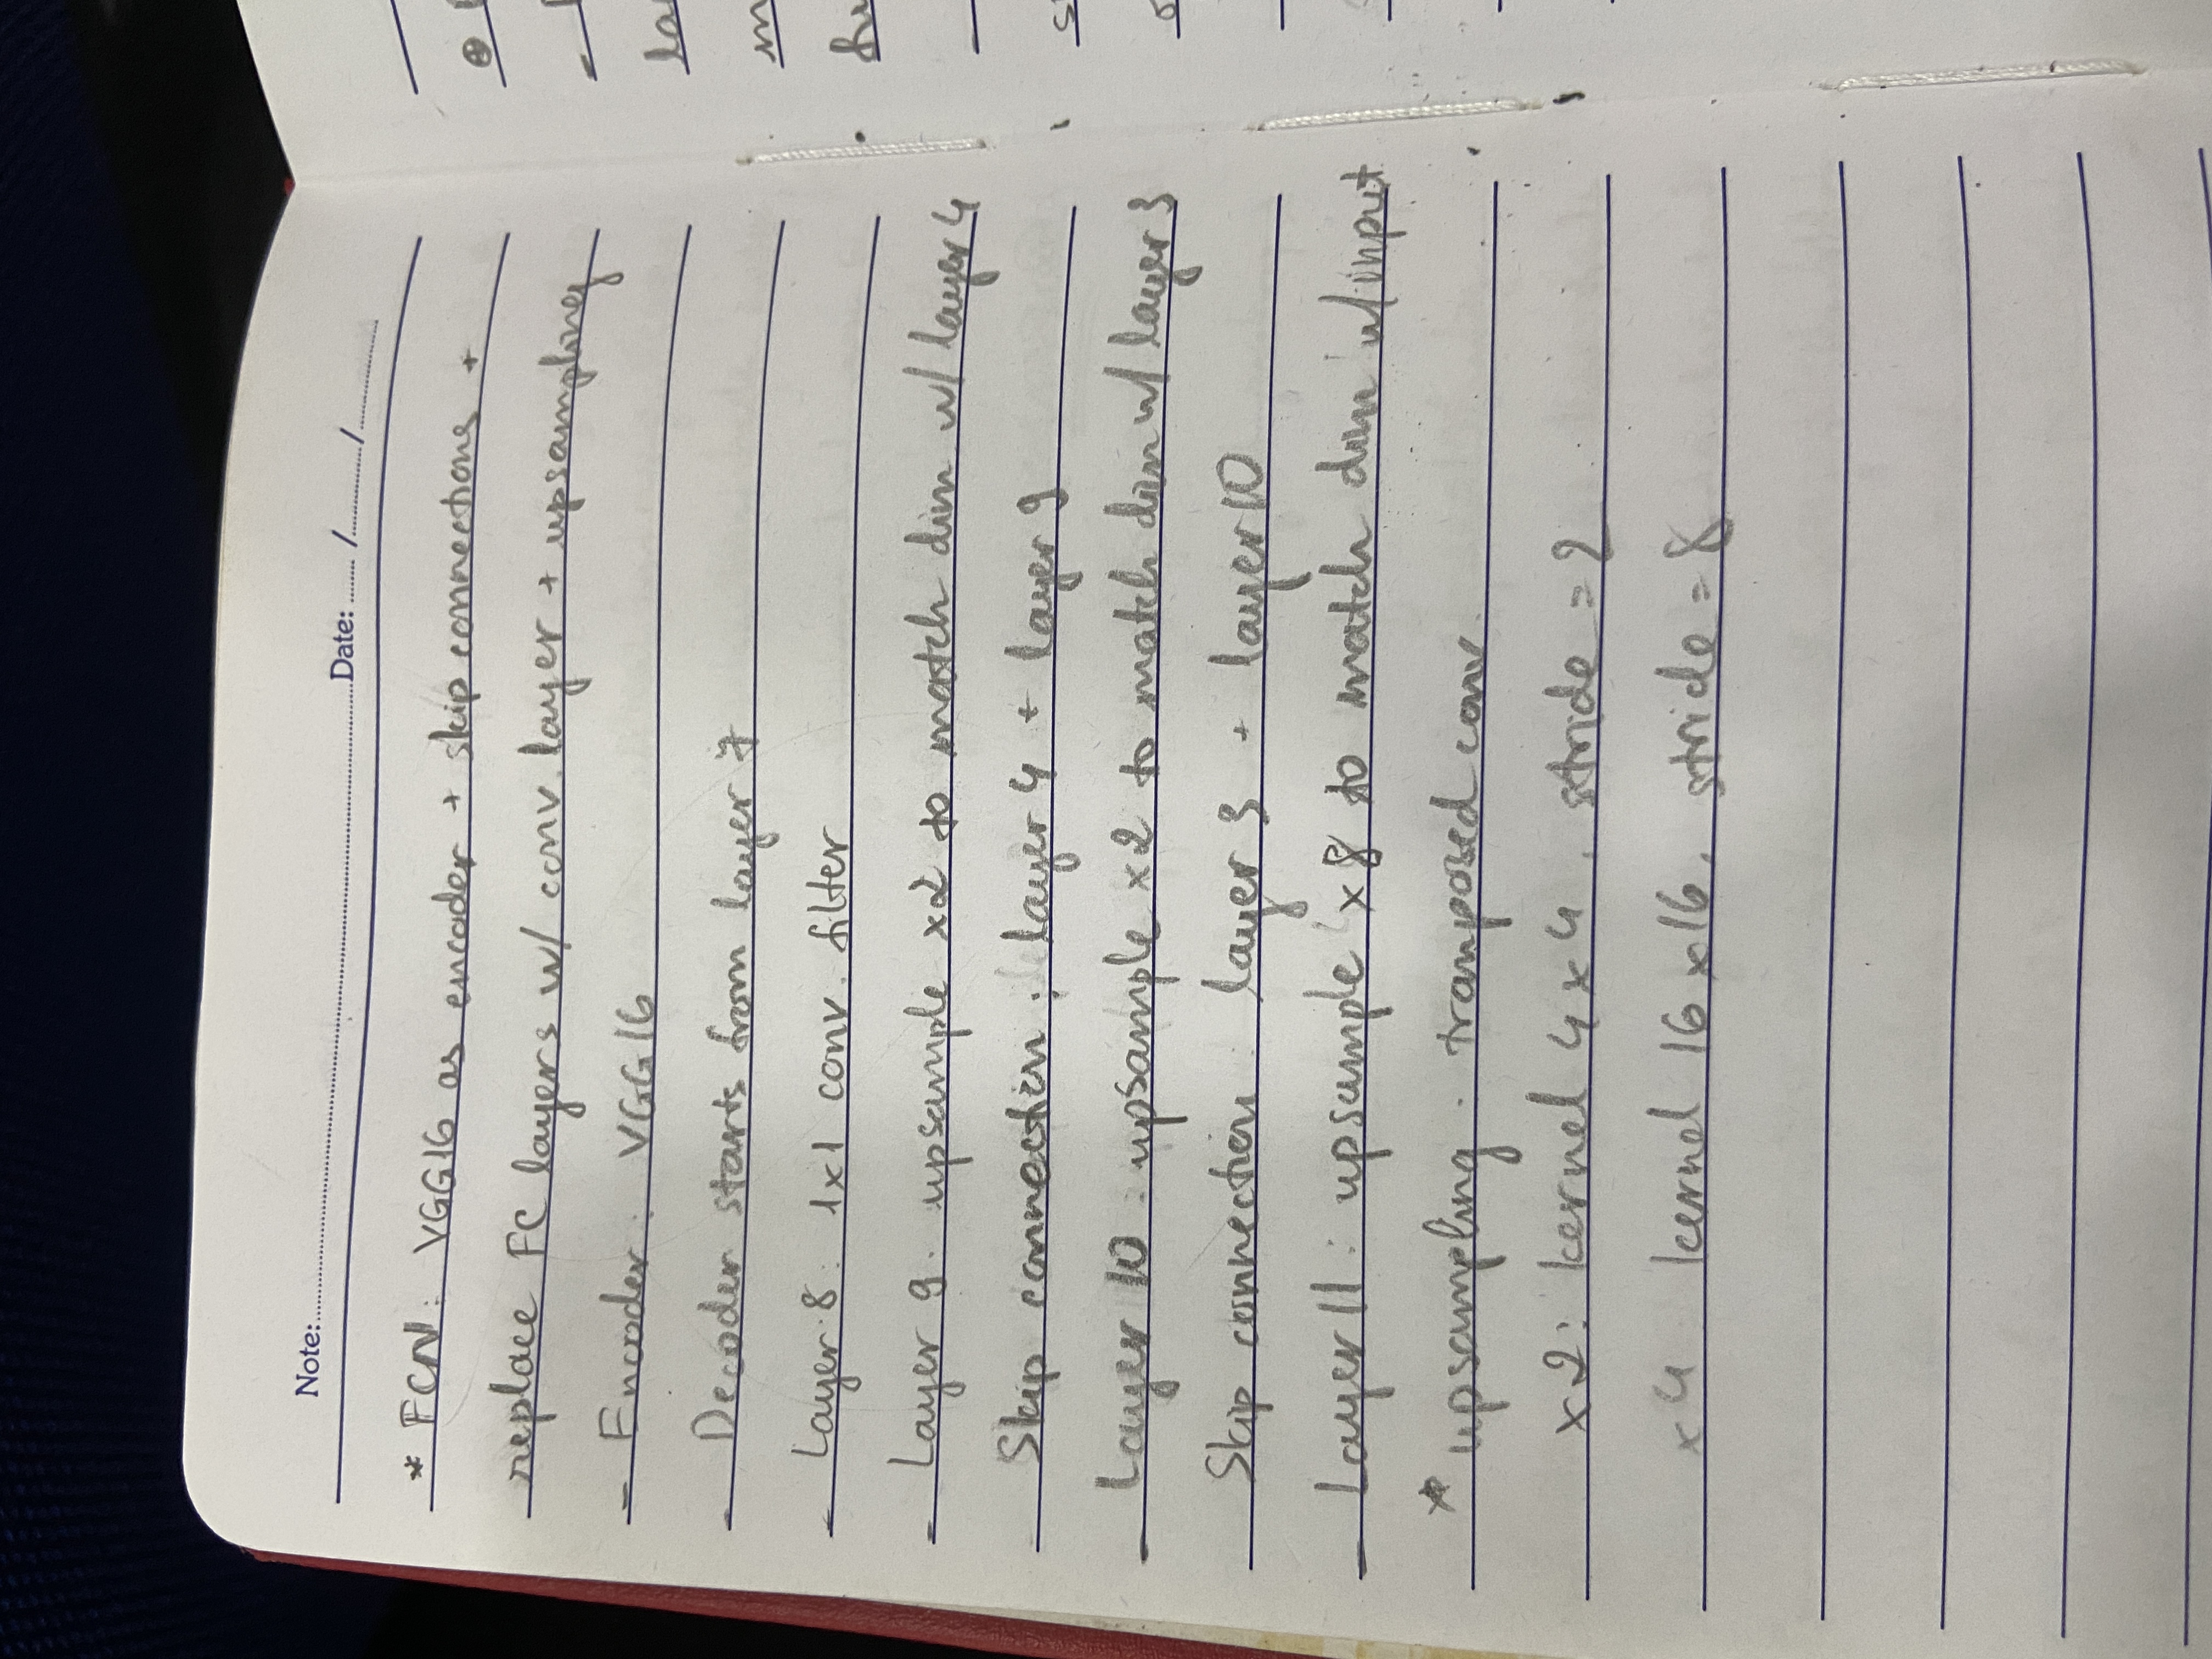 Note: Date: / /
* FCN: VGG16 as encoder + skip connections +
replace FC layers w/ conv. layer + upsampling
- Encoder: VGG16
- Decoder starts from layer 7
- Layer 8: 1x1 conv. filter
- Layer 9: upsample x2 to match dim w/ layer 4
Skip connection: layer 4 + layer 9
- Layer 10: upsample x2 to match dim w/ layer 3
Skip connection: layer 3 + layer 10
- Layer 11: upsample x8 to match dim w/ input
* upsampling: tranposed conv.
x2: kernel 4x4, stride = 2
x4 kernel 16x16, stride = 8